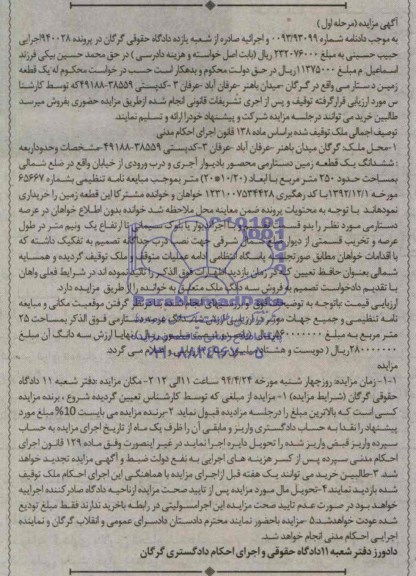 آگهی مزایده (مرحله اول)
به موجب دادنامه شماره ۰۰۹۳/۹۳۰۹۹ و اجرائیه صادره از شعبه یازده دادگاه حقوقی گرگان در پرونده ۹۴۰۰۲۸اجرایی
حبیب حسینی به مبلغ ۲۳۲۰۷۶۰۰۰ ریال (بابت اصل خواسته و هزینه دادرسی) در حق محمد حسین بیکی فرزند
اسماعیل م مبلغ ۱۱۳۷۵۰۰۰ ریال در حق دولت محکوم و بدهکار است حسب در خواست محکوم له یک قطعه
زمین دستارمی واقع در گرگان -میدان باهنر -عرفان آباد -عرفان ۳ -کدپستی ۳۸۵۵۹-۴۹۱۸۸که توسط کارشنا
س مورد ارزیابی قرار گرفته توقیف و پس از اجری تشریفات قانونی انجام شده ازطریق مزایده حضوری بفروش میرسد
طالبین خرید می توانند درجلسه مزایده شرکت و پیشنهاد خودرا ارائه و تسلیم نمایند.
توصیف اجمالی ملک توقیف شده براساس ماده ۱۳۸ قانون اجرای احکام مدنی
۱-محل ملک گرگان میدان باهنر -عرفان آباد -عرفان ۳-کدپستی ۳۸۵۵۹-۴۹۱۸۸-مشخصات وحدوداربعه
: ششدانگ یک قطعه زمین دستارمی محصور بادیوار آجری و درب ورودی از خیابان واقع در ضلع شمالی
بمساحت حدود ۲۵۰ متر مربع با ابعاد (۱۰/۲۰*۲۰) متر بموجب مبایعه نامه تنظیمی بشماره ۶۵۶۶۷
مورخه ۱۳۹۲/۱۲/۱با کد رهگیری ۱۲۳۱۰۰۷۵۳۴۴۲۸ خواهان و خوانده مشترکا این قطعه زمین را خریداری
نمودهانند با توجه به محتویات پرونده ضمن معاینه محل ملاحظه شد خوانده بدون اطلاع خواهان در عرصه
دستارمی مورد نظر را بدو قسمت با بلوک سیمانی با ارتفاع یک ونیم متر در طول
عرصه و تخریب قسمتی از دیوار شرقی جهت نصب درب جداگانه تصمیم به تفکیک داشته که
با اقدامات خواهان مطابق صورتجلسه پاسگاه انتظامی ادامه عملیات متوقف ملک توقیف گردیده و همسایه
شمالی بعنوان حافظ تعیین که در زمان بازدید اظهارات فوق الذکر را تأیید نموده اند در شرایط فعلی وهان
با تقدیم دادخواست تصمیم به فروش سه دانگ ملک متعلق به خوانده را از طریق مزایده دارد
ارزیابی قیمت باتوجه به توضیحات فوق گرفتن موقعیت مکانی و مبایعه
نامه تنظیمی و جمیع جهات موثر در ارزیابی ارزش ششدانگ عرصه دستارمی فوق الذکر بمساحت ۲۵
متر مربع به مبلغ ریال نهایتا ارزش سه دانگ آن مبلغ
۲۸۰۰۰۰۰۰۰۰ریال (دویست و هشتاد میلیون تومان) ارزیابی و اعلام می گردد.
مزایده
۱-۱- زمان مزایده: روزچهار شنبه مورخه ۹۲/۴/۲۴ ساعت ۱۱الی ۱۲ ۲-مکان مزایده :دفتر شعبه ۱۱ دادگاه
حقوقی گرگان (شرایط مزایده) ۱-مزایده از مبلغی که توسط کارشناس تعیین گردیده شروع ، برنده مزایده
کسی است که بالاترین مبلغ را درجلسه مزایده قبول نماید ۲-برنده مزایده می بایست %10 مبلغ مورد
پیشنهاد را نقدا به حساب دادگستری واریز و مابقی آن را ظرف یک ماه از تاریخ اجرای مزایده به حساب
سپرده واریز قبض واریز شده را تحویل دایره اجرا نماید در غیر اینصورت وفق ماده ۱۲۹ قانون اجرای
احکام مدنی سپرده پس از کسر هزینه های اجرایی به نفع دولت ضبط و آگهی مزایده تجدید خواهد
شد. ۳-طالبین خرید می توانند یک هفته قبل ازاجرای مزایده با هماهنگی این اجرای احکام ملک توقیف
شده بازدید نمایند ۴-تحویل مال مورد مزایده پس از تایید صحت مزایده ازناحیه دادگاه صادر کننده اجراییه
خواهد بود در صورت عدم تایید صحت مزایده این اجرا مسولیتی در رابطه باخرید ندارند فقط مبلغ تودیع
شده عودت خواهدشد.۵ -مزایده باحضور نماینده محترم دادستان دادسرای عمومی و انقلاب گرگان و نماینده
اجرایی احکام مدنی انجام خواهد شد.
دادورز دفتر شعبه ۱۱دادگاه حقوقی و اجرای احکام دادگستری گرگان